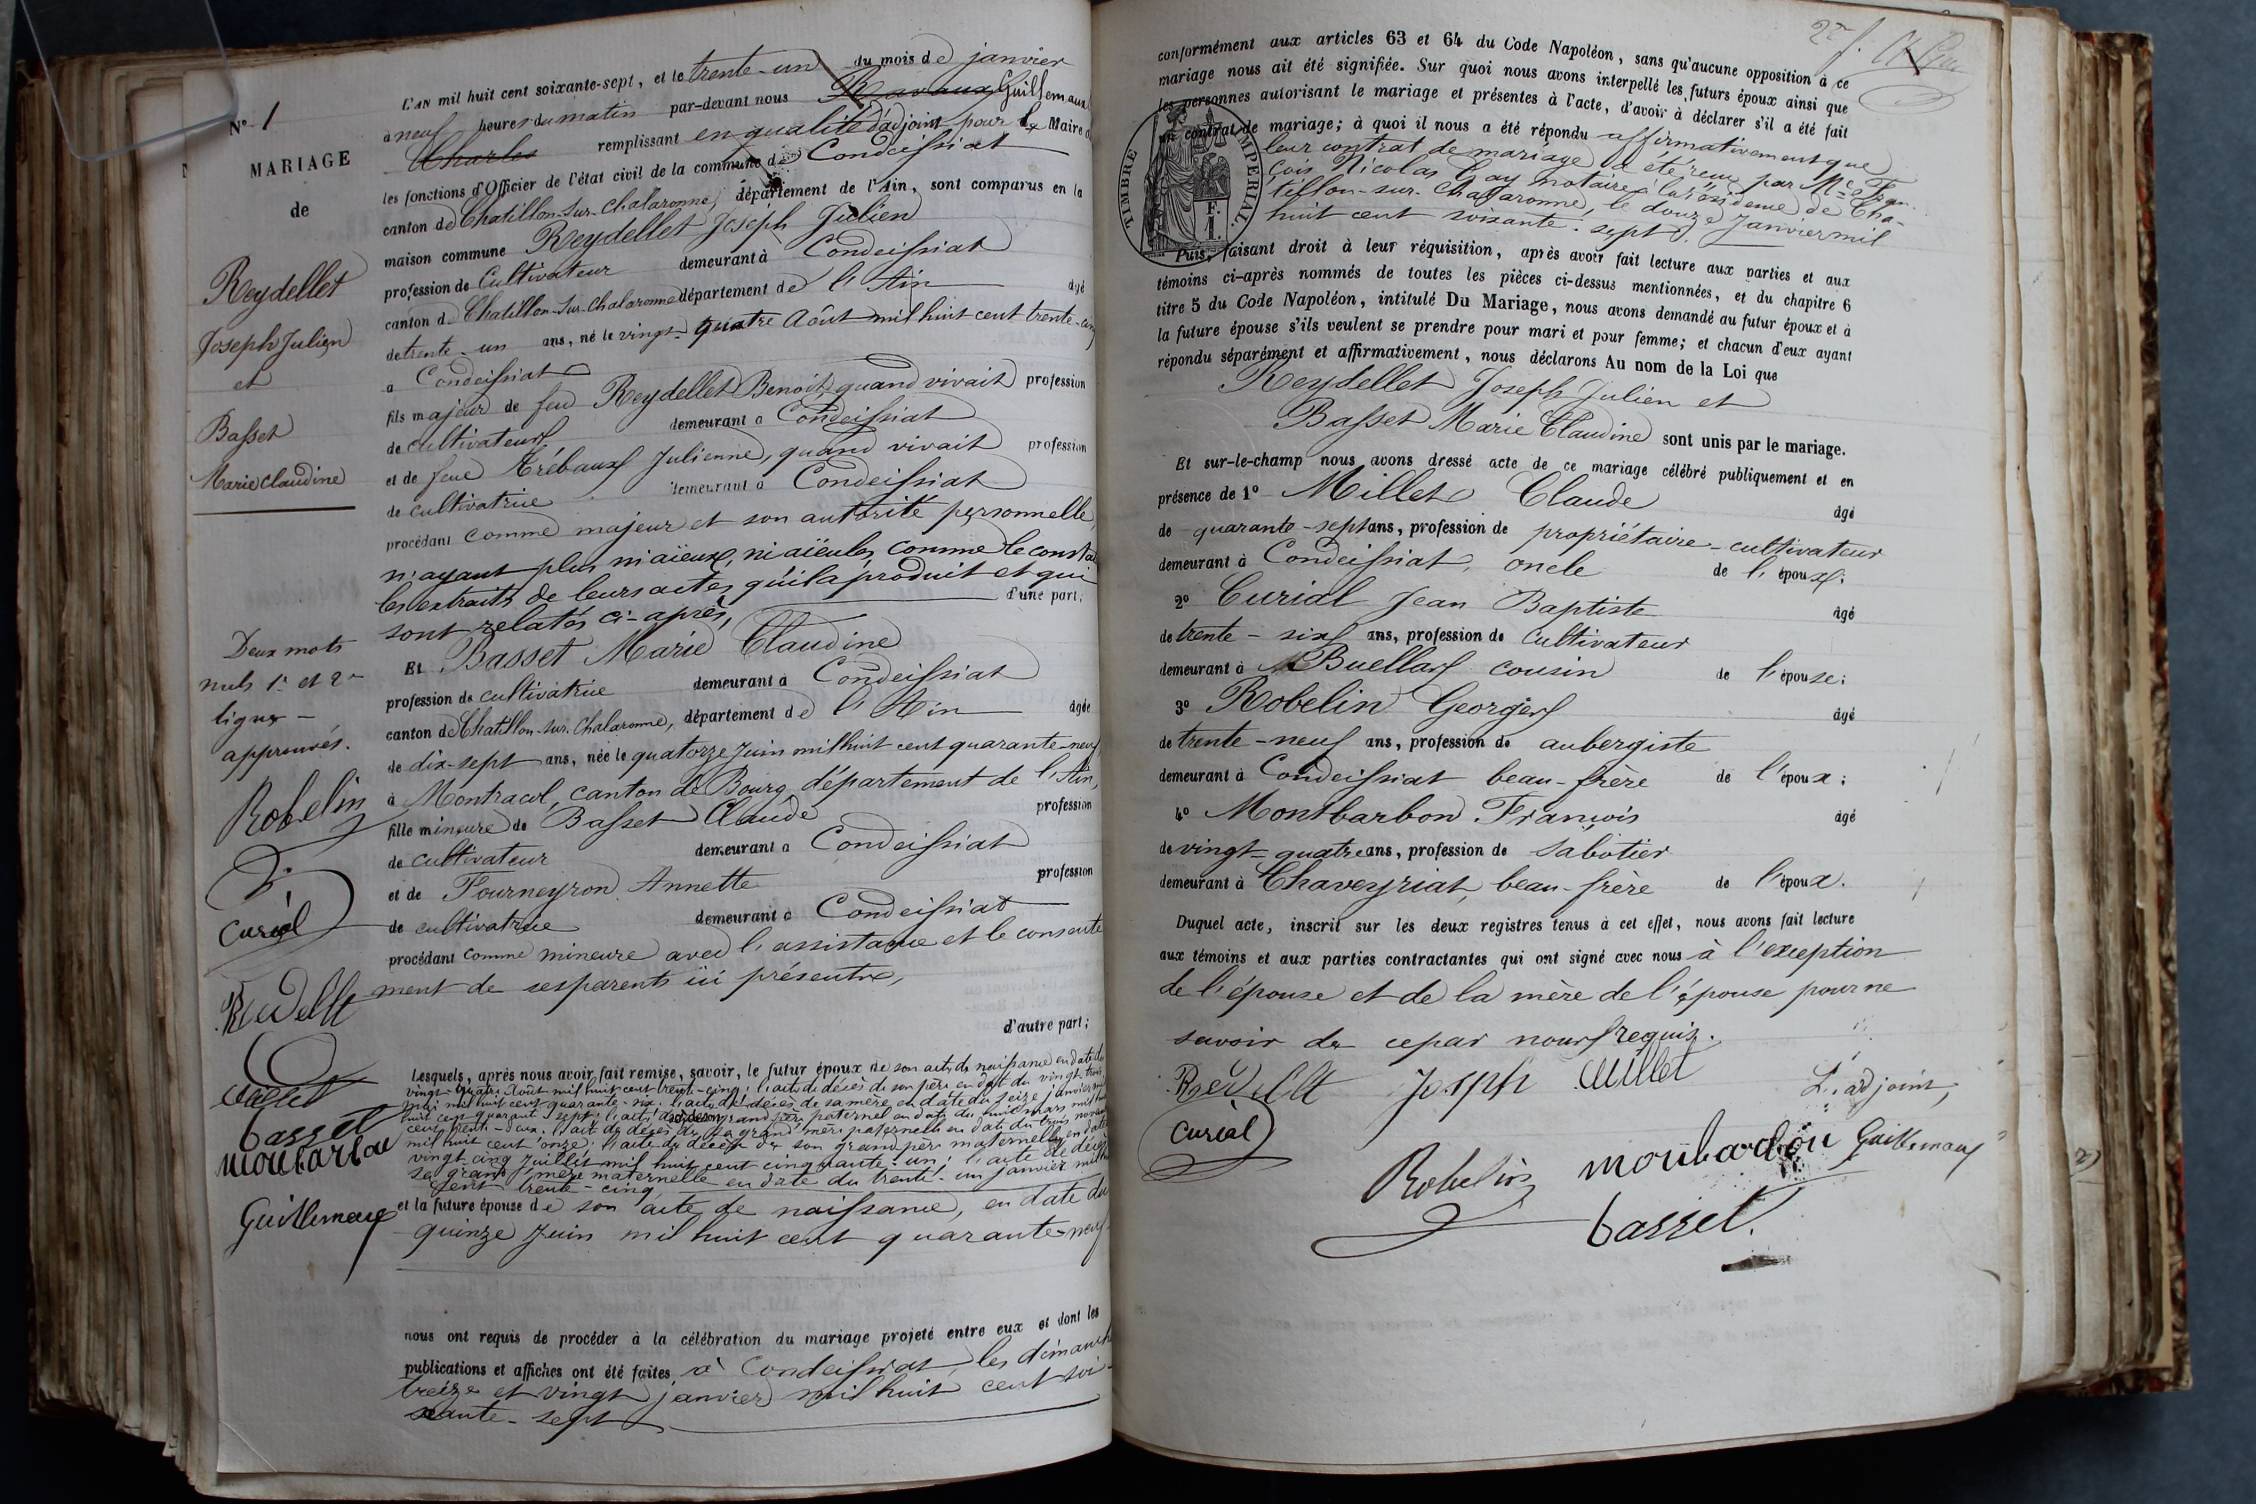 N° 1
MARIAGE
de
Reydellet
Joseph Julien
et
Basset
Marie Claudine
Deux mots
nuls 1e et 2e
lignes
approuvés.
Robelin
Curial
Reidellt
Millet
basset
moubarbou
Guillemaux
L'AN mil huit cent soixante-sept, et le trente-un du mois de janvier
à neuf heures du matin par-devant nous Ravaux Guillemaux
Charles remplissant en qualité d'adjoint pour le Maire
les fonctions d'Officier de l'état civil de la commune de Condeissiat
canton de Chatillon-sur-Chalaronne, département de l'Ain, sont comparus en la
maison commune Reydellet Joseph Julien
profession de Cultivateur demeurant à Condeissiat
canton de Chatillon-sur-Chalaronne département de l'Ain âgé
de trente-un ans, né le vingt-quatre Août mil huit cent trente-cinq
à Condeissiat
fils majeur de feu Reydellet Benoit, quand vivait profession
de cultivateur demeurant à Condeissiat
et de feue Trébaux Julienne, quand vivait profession
de cultivatrice demeurant à Condeissiat
procédant comme majeur et son autorité personnelle,
n'ayant plus ni aïeux, ni aïeules, comme le constate
les extraits de leurs actes qu'il a produit et qui
sont relatés ci-après, d'une part;
Et Basset Marie Claudine
profession de cultivatrice demeurant à Condeissiat
canton de Chatillon-sur-Chalaronne, département de l'Ain âgée
de dix-sept ans, née le quatorze juin mil huit cent quarante-neuf
à Montracol, canton de Bourg, département de l'Ain,
fille mineure de Basset Claude profession
de cultivateur demeurant à Condeissiat
et de Fourneyron Annette profession
de cultivatrice demeurant à Condeissiat
procédant comme mineure avec l'assistance et le consente
ment de ses parents ici présents,
d'autre part;
Lesquels, après nous avoir fait remise, savoir, le futur époux de son acte de naissance en date du
vingt-quatre Août mil huit cent trente-cinq; l'acte de décès de son père en date du vingt-trois
mai mil huit cent quarante-six; l'acte de décès de sa mère en date du seize janvier mil
huit cent quarante-sept; l'acte de décès de son grand père paternel en date du huit mars mil huit
cent trente-deux; l'acte de décès de sa grand'mère paternelle en date du trois novembre
mil huit cent onze; l'acte de décès de son grand père maternelle en date
vingt-cinq juillet mil huit cent cinquante-un; l'acte de décès
sa grand'mère maternelle en date du trente-un janvier mil huit
cent trente-cinq,
et la future épouse de son acte de naissance, en date du
quinze juin mil huit cent quarante-neuf
nous ont requis de procéder à la célébration du mariage projeté entre eux et dont les
publications et affiches ont été faites à Condeissiat, les dimanches
treize et vingt janvier mil huit cent soi
xante-sept
conformément aux articles 63 et 64 du Code Napoléon, sans qu'aucune opposition à ce
mariage nous ait été signifiée. Sur quoi nous avons interpellé les futurs époux ainsi que
les personnes autorisant le mariage et présentes à l'acte, d'avoir à déclarer s'il a été fait
un contrat de mariage; à quoi il nous a été répondu affirmativement que
leur contrat de mariage a été reçu par Me Fran-
çois Nicolas Gay notaire à la résidence de Cha-
tillon-sur-Chalaronne, le douze janvier mil
huit cent soixante-sept.
TIMBRE IMPERIAL
Puis, faisant droit à leur réquisition, après avoir fait lecture aux parties et aux
témoins ci-après nommés de toutes les pièces ci-dessus mentionnées, et du chapitre 6
titre 5 du Code Napoléon, intitulé Du Mariage, nous avons demandé au futur époux et à
la future épouse s'ils veulent se prendre pour mari et pour femme; et chacun d'eux ayant
répondu séparément et affirmativement, nous déclarons Au nom de la Loi que
Reydellet Joseph Julien et
Basset Marie Claudine sont unis par le mariage.
Et sur-le-champ nous avons dressé acte de ce mariage célébré publiquement et en
présence de 1° Millet Claude âgé
de quarante-sept ans, profession de propriétaire-cultivateur
demeurant à Condeissiat, oncle de l'époux;
2° Curial Jean Baptiste âgé
de trente-six ans, profession de cultivateur
demeurant à Buellas cousin de l'épouse;
3° Robelin Georges âgé
de trente-neuf ans, profession de aubergiste
demeurant à Condeissiat beau-frère de l'époux;
4° Montbarbon François âgé
de vingt-quatre ans, profession de sabotier
demeurant à Chaveyriat, beau-frère de l'époux.
Duquel acte, inscrit sur les deux registres tenus à cet effet, nous avons fait lecture
aux témoins et aux parties contractantes qui ont signé avec nous à l'exception
de l'épouse et de la mère de l'épouse pour ne
savoir de ce par nous requis.
Reidellt Joseph Millet
L'adjoint,
Curial
Robelin moubarbou Guillemaux
basset